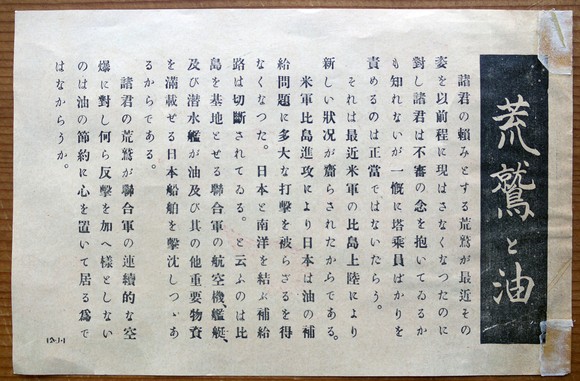 荒鷲と油
諸君の頼みとする荒鷲が最近その
姿を以前程に現はさなくなつたのに
對し諸君は不審の念を抱いてゐるか
も知れないが一慨に塔乗員ばかりを
責めるのは正當ではないだらう。
それは最近米軍の比島上陸により
新しい狀況が齎らされたからである。
米軍比島進攻により日本は油の補
給問題に多大な打擊を被らざるを得
なくなつた。日本と南洋を結ぶ補給
路は切斷されてゐる。と云ふのは比
島を基地とせる聯合軍の航空機、艦艇、
及び潜水艦が油及び其の他重要物資
を滿載せる日本船舶を擊沈しつゝあ
るからである。
諸君の荒鷲が聯合軍の連續的な空
爆に對し何ら反擊を加へ樣としない
のは油の節約に心を置いて居る爲で
はなからうか。
12-J-1